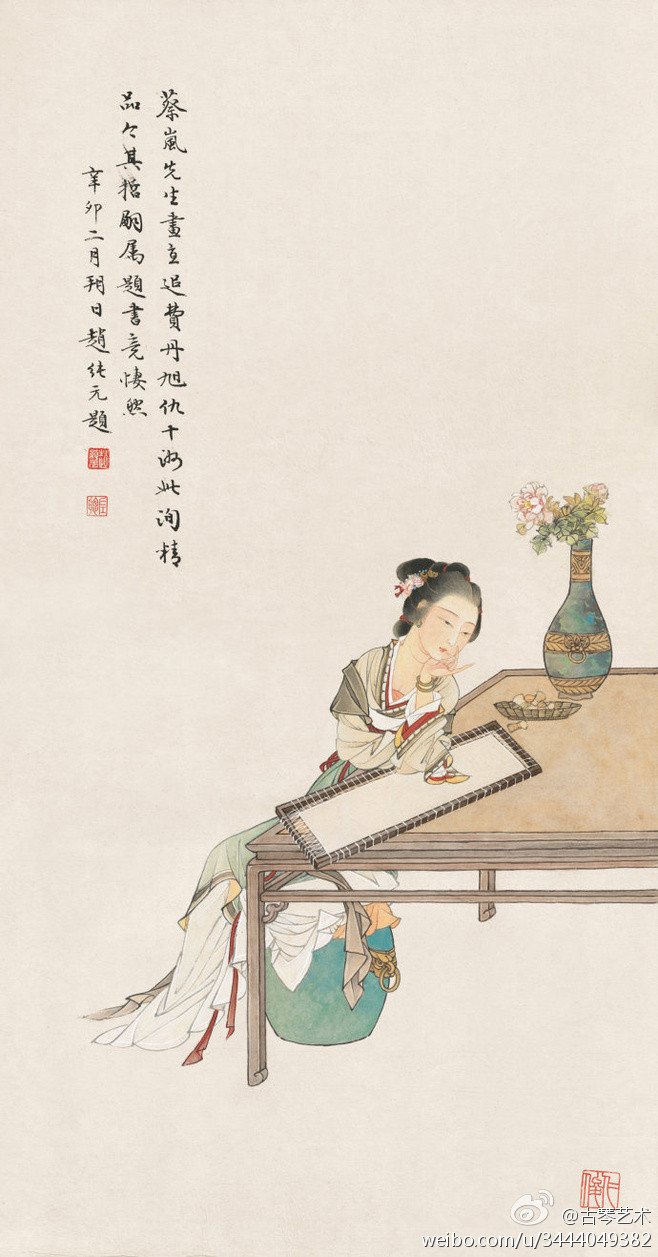 蔡嵐先生畫直追費丹旭仇十洲此洵精
品今其哲嗣属題書竟悽然
辛卯二月朔日趙純元題
@古琴艺术
weibo.com/u/3444049382